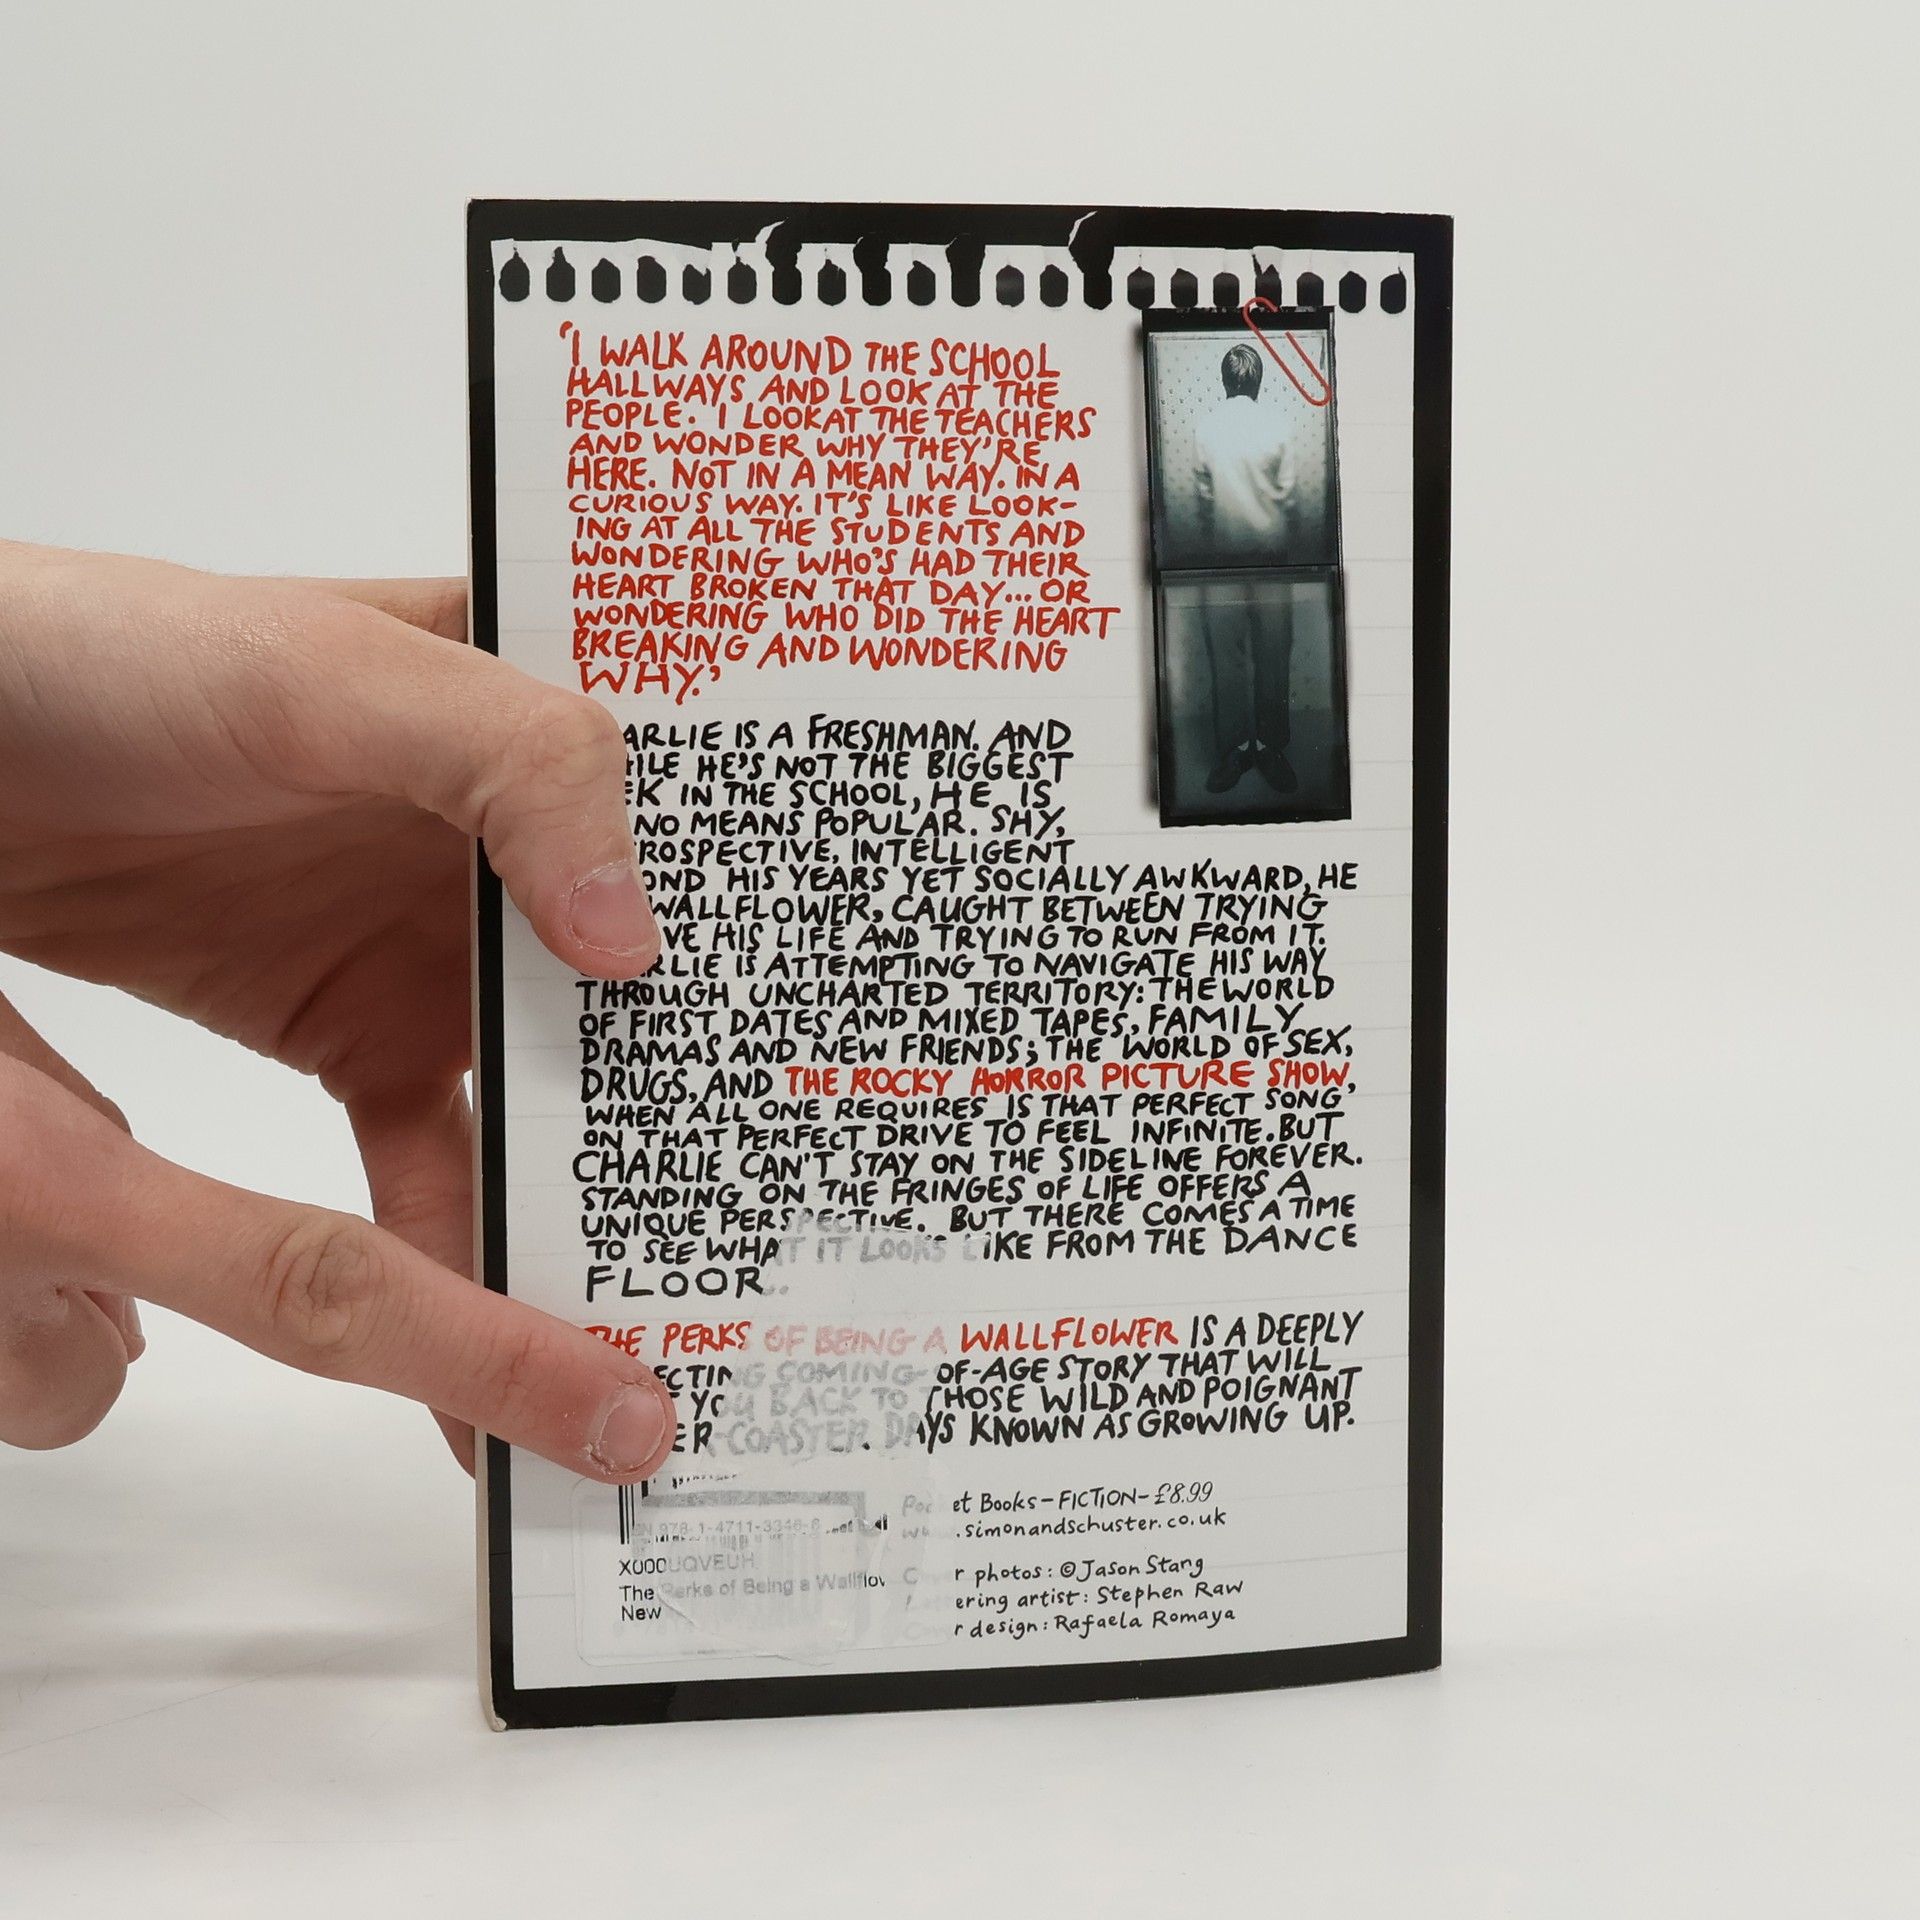 'I WALK AROUND THE SCHOOL
HALLWAYS AND LOOK AT THE
PEOPLE. I LOOK AT THE TEACHERS
AND WONDER WHY THEY'RE
HERE. NOT IN A MEAN WAY. IN A
CURIOUS WAY. IT'S LIKE LOOK-
ING AT ALL THE STUDENTS AND
WONDERING WHO'S HAD THEIR
HEART BROKEN THAT DAY... OR
WONDERING WHO DID THE HEART
BREAKING AND WONDERING
WHY.'
ARLIE IS A FRESHMAN. AND
ILE HE'S NOT THE BIGGEST
EK IN THE SCHOOL, HE IS
NO MEANS POPULAR. SHY,
ROSPECTIVE, INTELLIGENT
OND HIS YEARS YET SOCIALLY AWKWARD, HE
WALLFLOWER, CAUGHT BETWEEN TRYING
VE HIS LIFE AND TRYING TO RUN FROM IT.
RLIE IS ATTEMPTING TO NAVIGATE HIS WAY
THROUGH UNCHARTED TERRITORY: THE WORLD
OF FIRST DATES AND MIXED TAPES, FAMILY
DRAMAS AND NEW FRIENDS; THE WORLD OF SEX,
DRUGS, AND THE ROCKY HORROR PICTURE SHOW,
WHEN ALL ONE REQUIRES IS THAT PERFECT SONG
ON THAT PERFECT DRIVE TO FEEL INFINITE. BUT
CHARLIE CAN'T STAY ON THE SIDELINE FOREVER.
STANDING ON THE FRINGES OF LIFE OFFERS A
UNIQUE PERSPECTIVE. BUT THERE COMES A TIME
TO SEE WHAT IT LOOKS LIKE FROM THE DANCE
FLOOR...
THE PERKS OF BEING A WALLFLOWER IS A DEEPLY
ECTING COMING-OF-AGE STORY THAT WILL
YOU BACK TO THOSE WILD AND POIGNANT
ER-COASTER DAYS KNOWN AS GROWING UP.
978-1-4711-3346-6
X000UQVEUH
The Perks of Being a Wallflow
New
Pocket Books - FICTION - £8.99
www.simonandschuster.co.uk
Cover photos: © Jason Stang
ering artist: Stephen Raw
Cover design: Rafaela Romaya